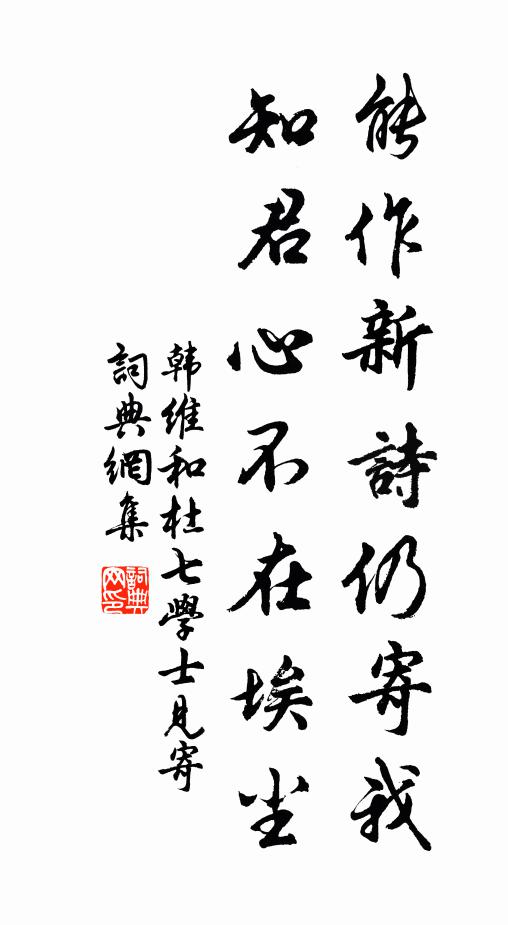 能作新詩仍寄我
知君心不在埃尘
韩维和杜七學士見寄
詞典網集
詞典
网印